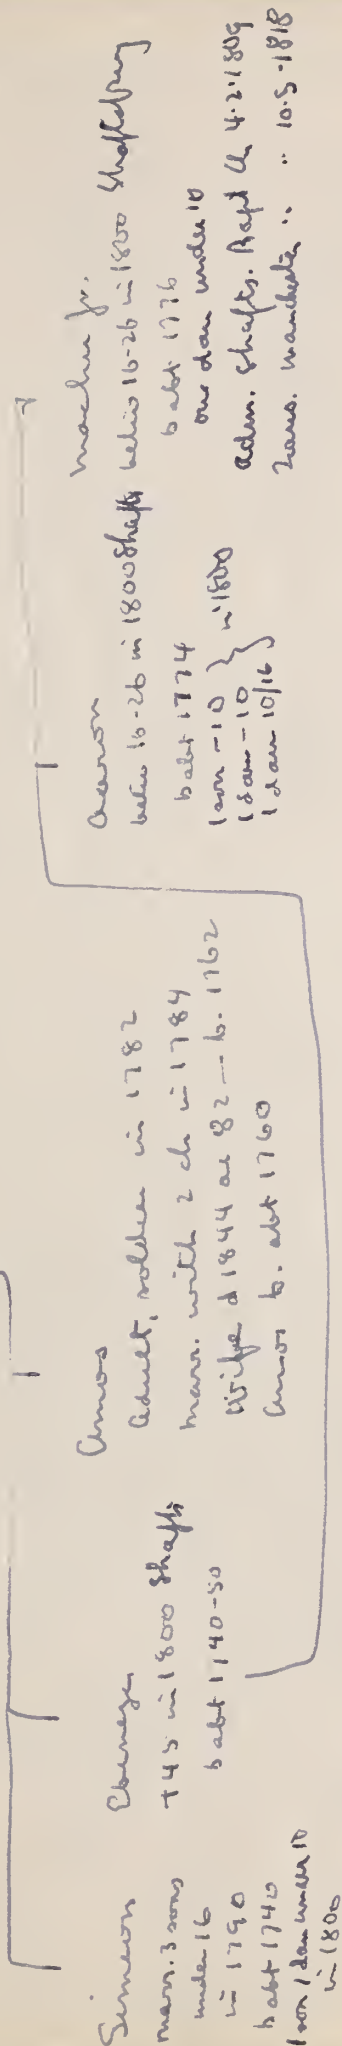 Simeon
marr. 3 sons
under 16
in 1790
b abt 1740
1 son 1 dau under 10
in 1800
Ebenezer
+45 in 1800 Shafts
b abt 1740-50
Amos
adult, soldier in 1782
marr. with 2 ch in 1784
Wife d 1844 ae 82 -- b. 1762
Amos b. abt 1760
Aaron
betw 16-26 in 1800 Shafts
b abt 1774
1 son -10 } in 1800
1 dau -10
1 dau 10/16
Jr.
betw 16-26 in 1800 Shaftsbury
b abt 1776
one dau under 10
adm. Shafts. Bapt Ch 4.2.1809
Trans. Manchester " " 10.5.1818